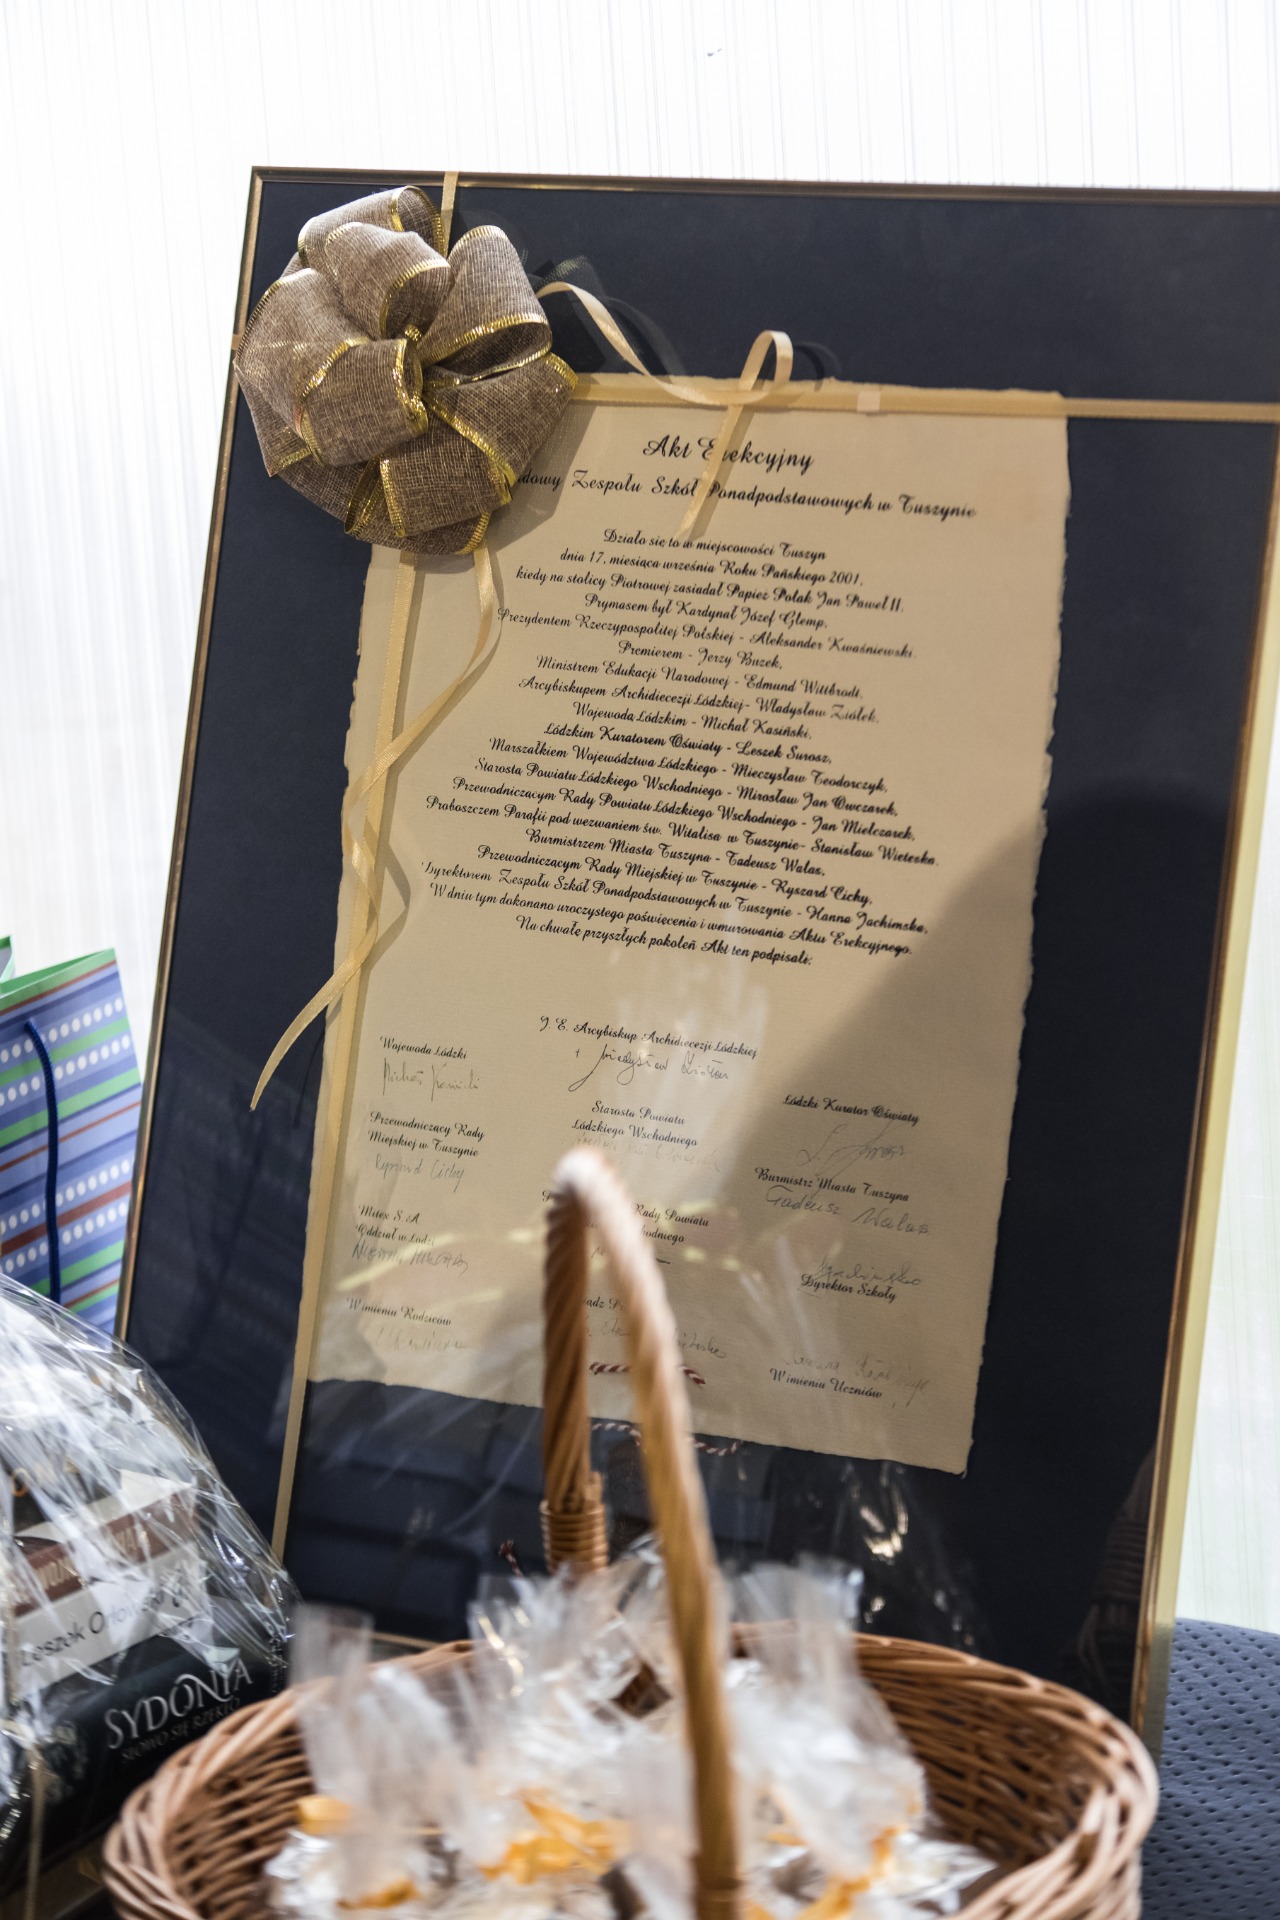 Akt Erekcyjny
Zespołu Szkół Ponadpodstawowych w Tuszynie
Działo się to w miejscowości Tuszyn
dnia 17, miesiąca września Roku Pańskiego 2001,
kiedy na stolicy Piotrowej zasiadał Papież Polak Jan Paweł II,
Prymasem był Kardynał Józef Glemp,
Prezydentem Rzeczypospolitej Polskiej - Aleksander Kwaśniewski.
Premierem - Jerzy Buzek,
Ministrem Edukacji Narodowej - Edmund Wittbrodt,
Arcybiskupem Archidiecezji Łódzkiej - Władysław Ziółek,
Wojewodą Łódzkim - Michał Kasiński,
Łódzkim Kuratorem Oświaty - Leszek Surosz,
Marszałkiem Województwa Łódzkiego - Mieczysław Teodorczyk,
Starostą Powiatu Łódzkiego Wschodniego - Mirosław Jan Owczarek,
Przewodniczącym Rady Powiatu Łódzkiego Wschodniego - Jan Mielczarek,
Proboszczem Parafii pod wezwaniem św. Witalisa w Tuszynie - Stanisław Wieteska.
Burmistrzem Miasta Tuszyna - Tadeusz Walas,
Przewodniczącym Rady Miejskiej w Tuszynie - Ryszard Cichy,
Dyrektorem Zespołu Szkół Ponadpodstawowych w Tuszynie - Hanna Jachimska,
W dniu tym dokonano uroczystego poświęcenia i wmurowania Aktu Erekcyjnego.
Na chwałę przyszłych pokoleń Akt ten podpisali:
J. E. Arcybiskup Archidiecezji Łódzkiej
Władysław Ziółek
Wojewoda Łódzki
Michał Kasiński
Łódzki Kurator Oświaty
Starosta Powiatu
Łódzkiego Wschodniego
Przewodniczący Rady
Miejskiej w Tuszynie
Ryszard Cichy
Burmistrz Miasta Tuszyna
Tadeusz Walas
Rady Powiatu
Mitex S.A.
Oddział w Łodzi
Dyrektor Szkoły
W imieniu Rodziców
W imieniu Uczniów
Leszek
SYDONIA
SŁOWO SIĘ RZEKŁO